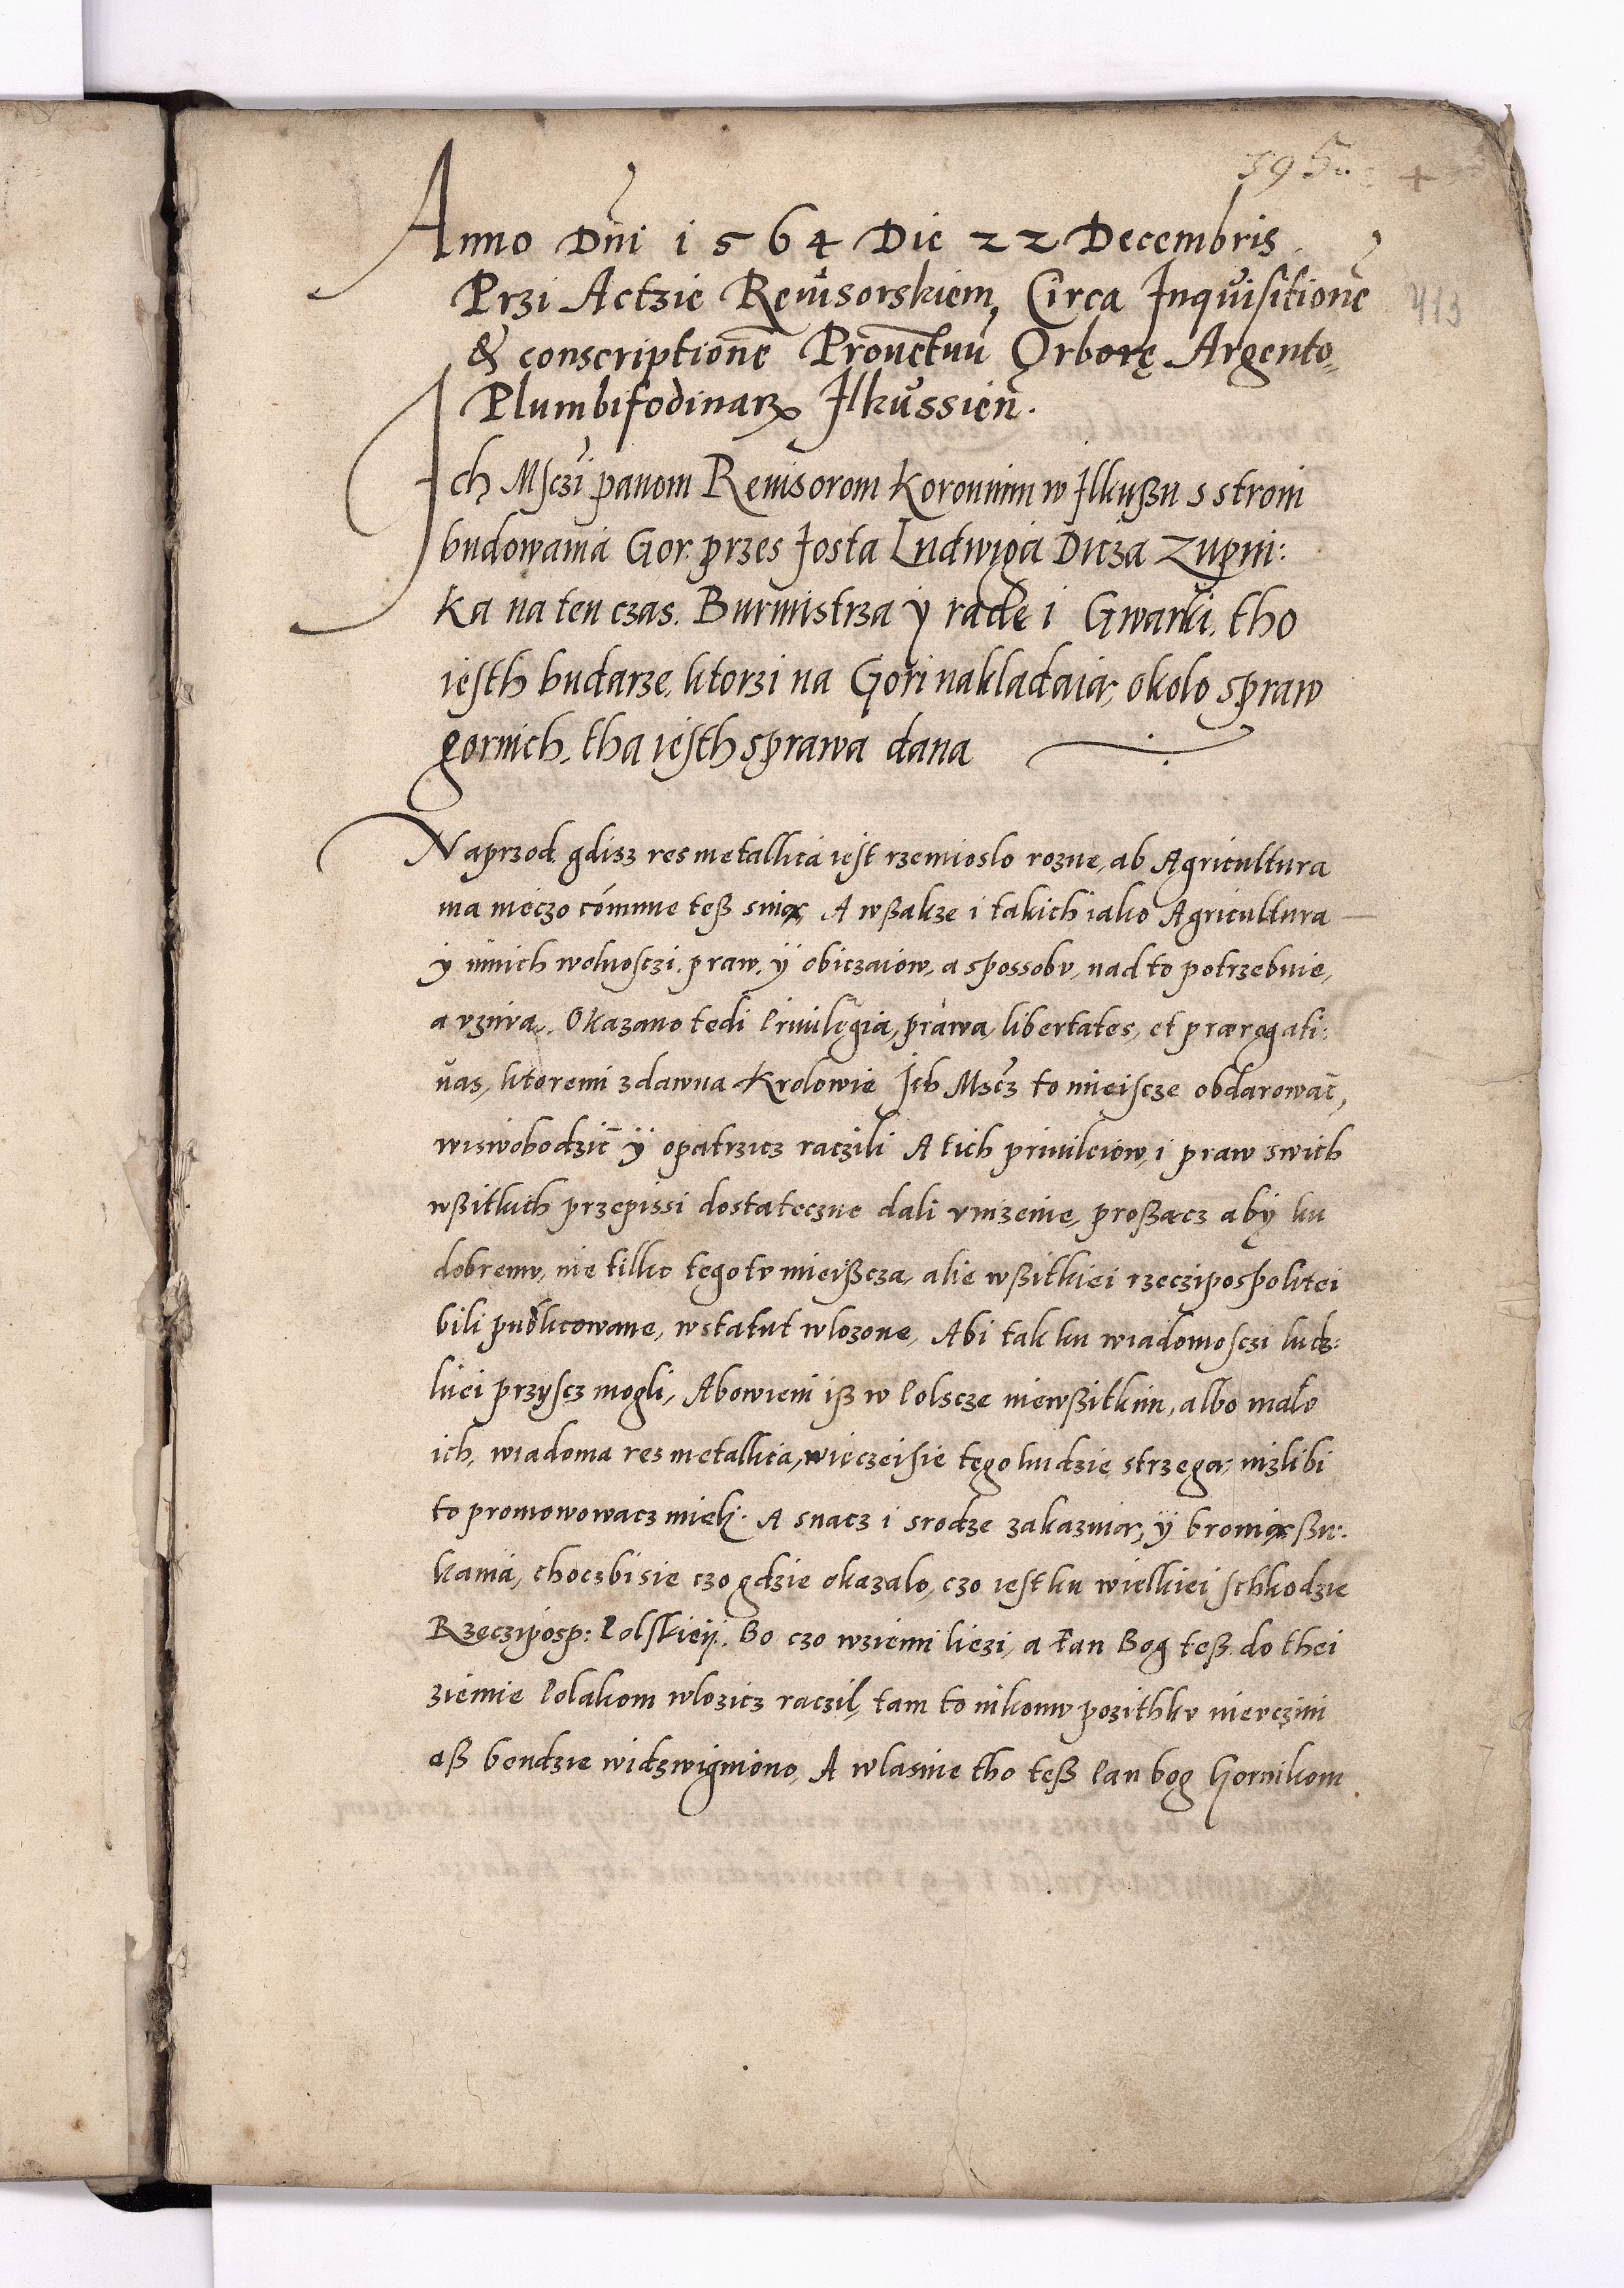 395
413
Anno Dñi 1564 Die 22 Decembris
Przi Actzie Reuisorskiem, Circa Inquisitionē
& conscriptionē Prouētuū Orborę Argento=
Plumbifodinarꝝ Ilkussień.
Ich Msczi panom Reuisorom Koronnim w Ilkußu s stroni
budowania Gor. przes Josta Ludwiga Dicza Zupni:
ka na ten czas. Burmistrza ÿ rade i Gwarki. tho
iesth budarze, ktorzi na Gori nakladaią, okolo spraw
gornich, tha iesth sprawa dana
Naprzod gdisz res metallica iest rzemioslo rozne, ab Agricultura
ma nieczo cōmune teß snią, A wßakze i takich iako Agricultura
ÿ innich wolnosczi. praw. ÿ obiczaiow, a spossobv, nad to potrzebuie,
a vziwa. Okazano tedi Priuilęgia, prawa, libertates, et prærogati:
uas, ktoremi zdawna Krolowie Ich Mscz to mieiscze obdarowac̄,
wiswobodzic̄ ÿ opatrzicz raczili A tich priuileiow, i praw swich
wßitkich przepissi dostateczne dali vnizenie, proßącz abÿ ku
dobremv, nie tilko tegotv mieißcza, alie wßitkiei rzeczipospolitei
bili publicowane, w statut wlozone, Abi tak ku wiadomosczi ludz:
kiei przyscz mogli, Abowiem iß w Polscze niewßitkim, albo malo
ich, wiadoma res metallica, wieczei sie tego ludzie strzega, nizlibi
to promowowacz mieli. A snacz i srodze zakazuią, ÿ bronią ßu:
kania, choczbi sie czo gdzie okazalo, czo iest ku wielkiei schkodzie
Rzeczipósp: Polskieij. Bo czo w ziemi liezi, a Pan Bog teß do thei
ziemie Polakom wlozicz raczil, tam to nikomv pozithkv nievczini
aß bendzie widzwigniono, A wlasnie tho teß Pan bog Gornikom